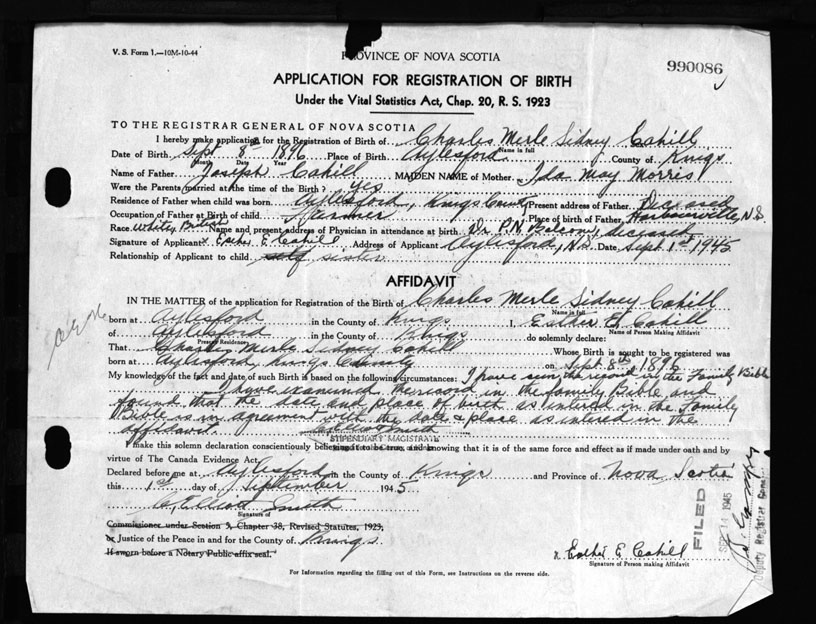 V. S. Form 1.—10M-10-44
PROVINCE OF NOVA SCOTIA
990086
APPLICATION FOR REGISTRATION OF BIRTH
Under the Vital Statistics Act, Chap. 20, R. S. 1923
TO THE REGISTRAR GENERAL OF NOVA SCOTIA
I hereby make application for the Registration of Birth of Charles Merle Sidney Cahill
Name in full
Date of Birth Sept 8th 1896 Place of Birth Aylesford County of Kings
Month Date Year
Name of Father Joseph Cahill MAIDEN NAME of Mother Ida May Morris
Were the Parents married at the time of Birth? yes
Residence of Father when child was born Aylesford, Kings County Present address of Father Deceased
Occupation of Father at Birth of child Farmer Place of birth of Father Harbourville, N.S.
Race White, British Name and present address of Physician in attendance at birth Dr. P.N. Balcom, deceased
Signature of Applicant x Esther E Cahill Address of Applicant Aylesford, N.S. Date Sept 1st 1945
Relationship of Applicant to child self sister
AFFIDAVIT
IN THE MATTER of the application for Registration of the Birth of Charles Merle Sidney Cahill
Name in full
born at Aylesford in the County of Kings I, Esther E Cahill
Name of Person Making Affidavit
of Aylesford in the County of Kings do solemnly declare:
Present Residence
That Charles Merle Sidney Cahill Whose Birth is sought to be registered was
born at Aylesford, Kings County on Sept. 8th 1896
My knowledge of the fact and date of such Birth is based on the following circumstances: I have seen the record in the Family Bible
I have examined the record in the family Bible and
found that the date and place of birth as intered in the Family
Bible is in agreement with the date & place as intered in the
affidavit.
STIPENDIARY MAGISTRATE
I make this solemn declaration conscientiously believing it to be true, and knowing that it is of the same force and effect as if made under oath and by
virtue of The Canada Evidence Act.
Declared before me at Aylesford in the County of Kings and Province of Nova Scotia
this 1st day of September 1945
Smith
Signature of
Commissioner under Section 3, Chapter 38, Revised Statutes, 1923,
or Justice of the Peace in and for the County of Kings
If sworn before a Notary Public affix seal.
x Esther E Cahill
Signature of Person making Affidavit
FILED
SEP 14 1945
Deputy Registrar General
For Information regarding the filling out of this Form, see Instructions on the reverse side.